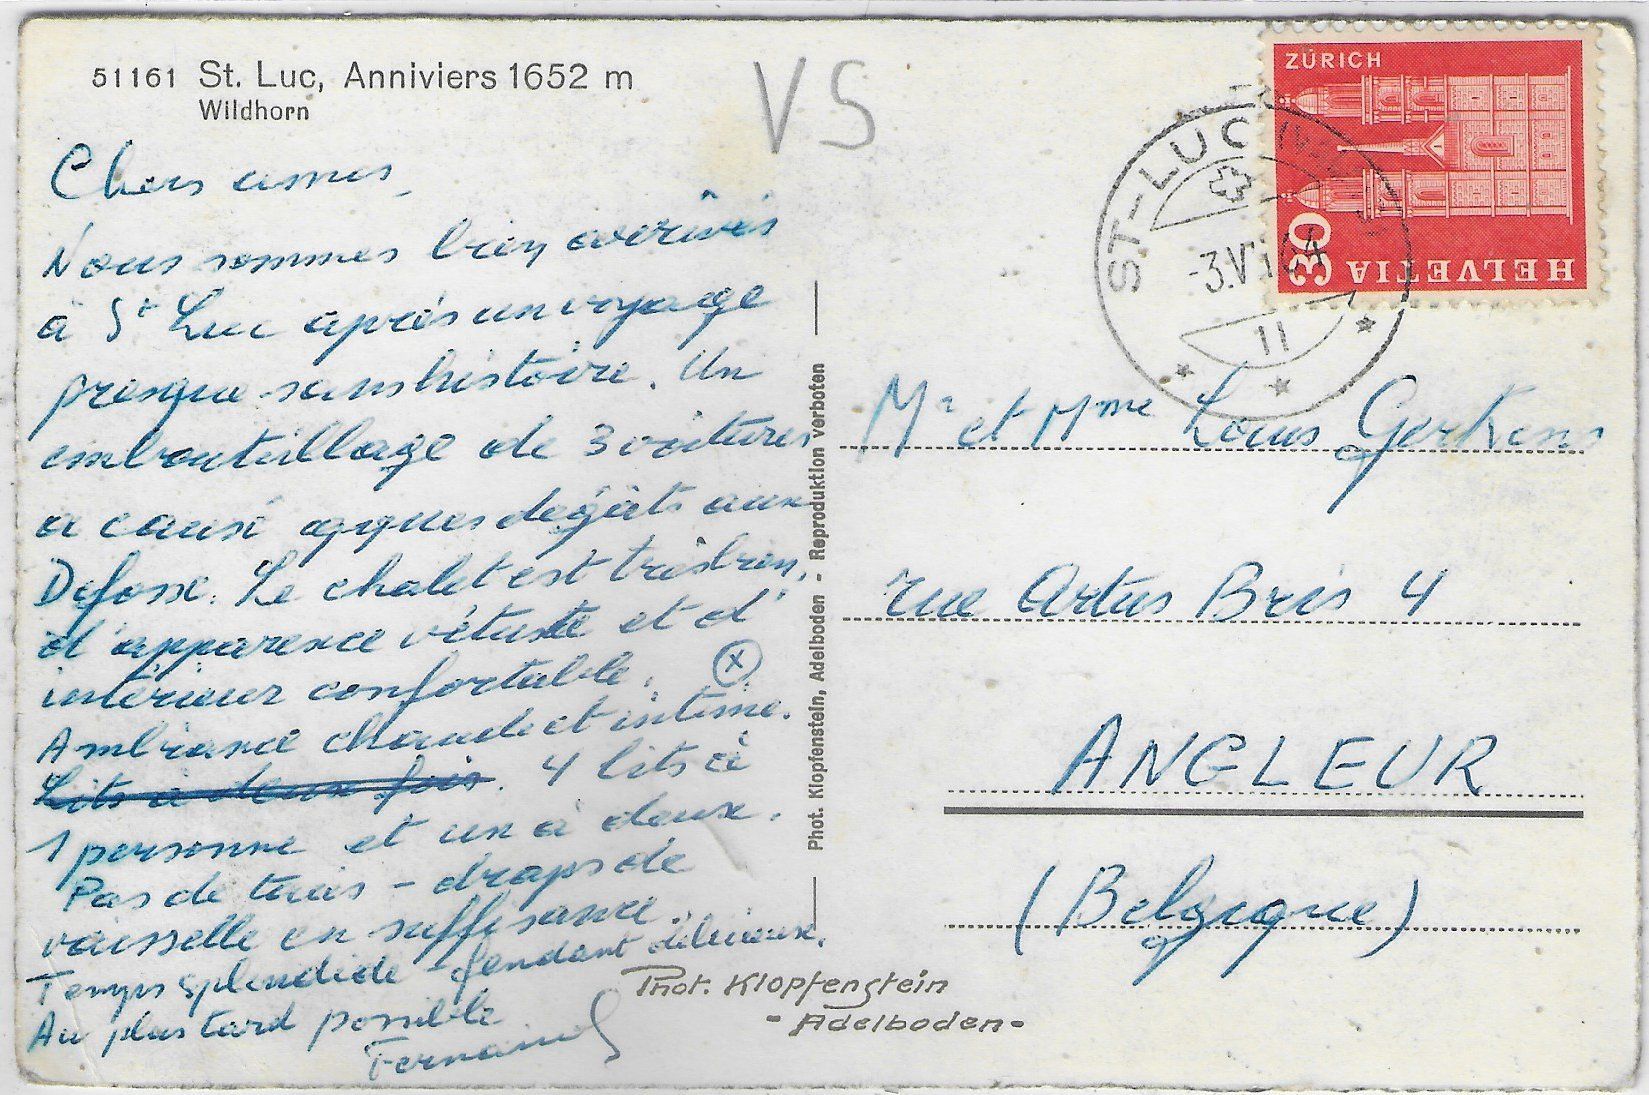 51161 St. Luc, Anniviers 1652 m
Wildhorn
VS
Chers amis,
Nous sommes bien arrivés
à St Luc après un voyage
presque sans histoire. Un
embouteillage de 3 voitures
a causé qques dégâts aux
Defosse. Le chalet est très bien,
d'apparence vétuste et d'
intérieur confortable. (x)
Ambiance chaude et intime.
Lits à deux fois. 4 lits à
1 personne et un à deux.
Pas de taies - draps de
vaisselle en suffisance.
Temps splendide - fendant délicieux.
Au plus tard possible
Fernand
Phot. Klopfenstein, Adelboden - Reproduktion verboten
Phot. Klopfenstein
- Adelboden -
ZÜRICH
HELVETIA
30
ST-LUC
-3.VII 64
11
Mr et Mme Louis Gerkens
rue Artus Bris 4
ANGLEUR
(Belgique)